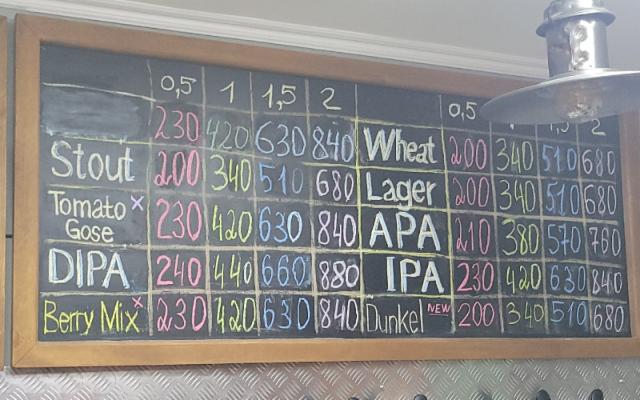 0,5 1 1,5 2 0,5 2
230 420 630 840 Wheat 200 340 510 680
Stout 200 340 510 680 Lager 200 340 510 680
Tomato x
Gose 230 420 630 840 APA 210 380 570 760
DIPA 240 440 660 880 IPA 230 420 630 840
Berry Mix x 230 420 630 840 Dunkel NEW 200 340 510 680